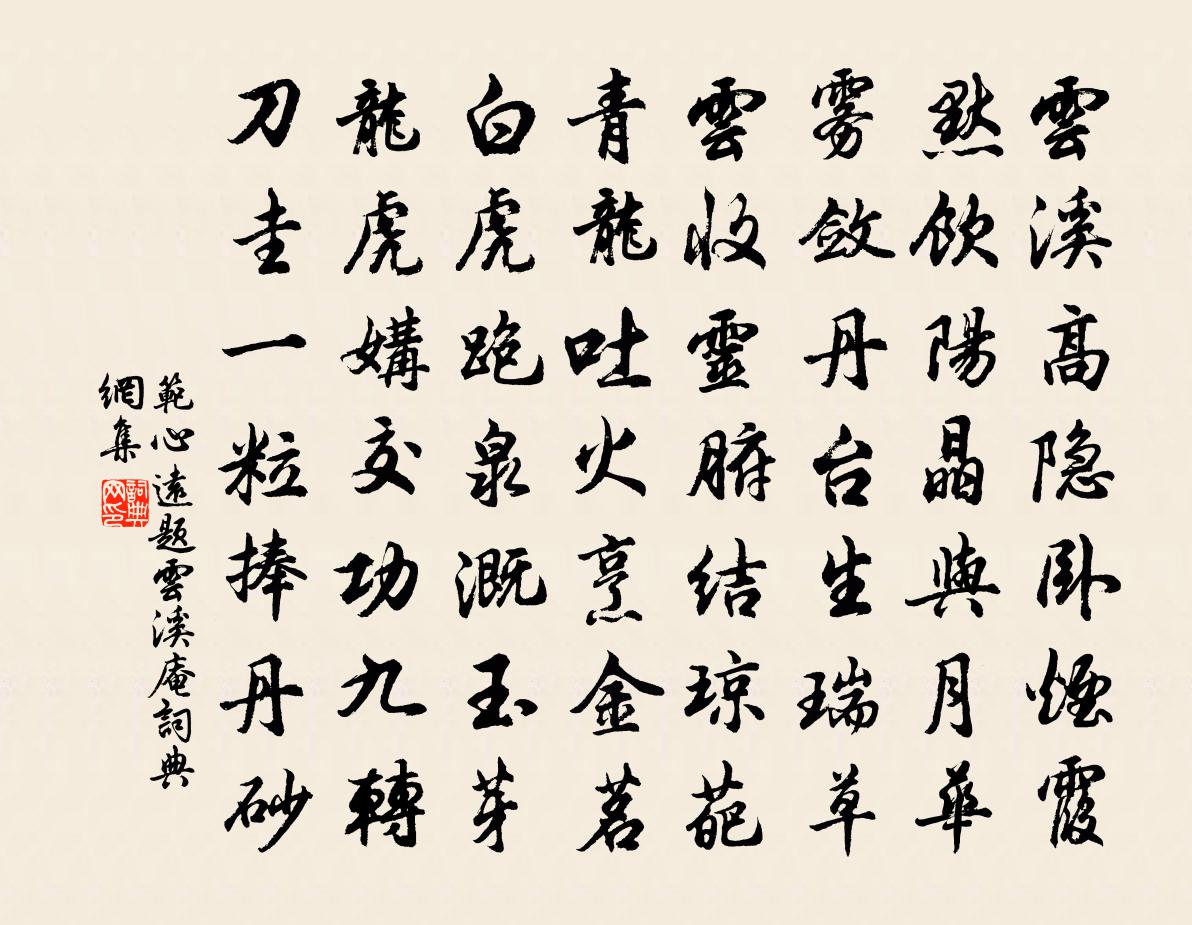 雲溪高隐卧煙霞
㸃飲陽晶與月華
雾斂丹台生瑞草
雲收靈腑结琼葩
青龍吐火烹金茗
白虎跑泉溉玉芽
龍虎媾交功九轉
刀圭一粒捧丹砂
範心遠題雲溪庵詞典
網集
詞典
网印